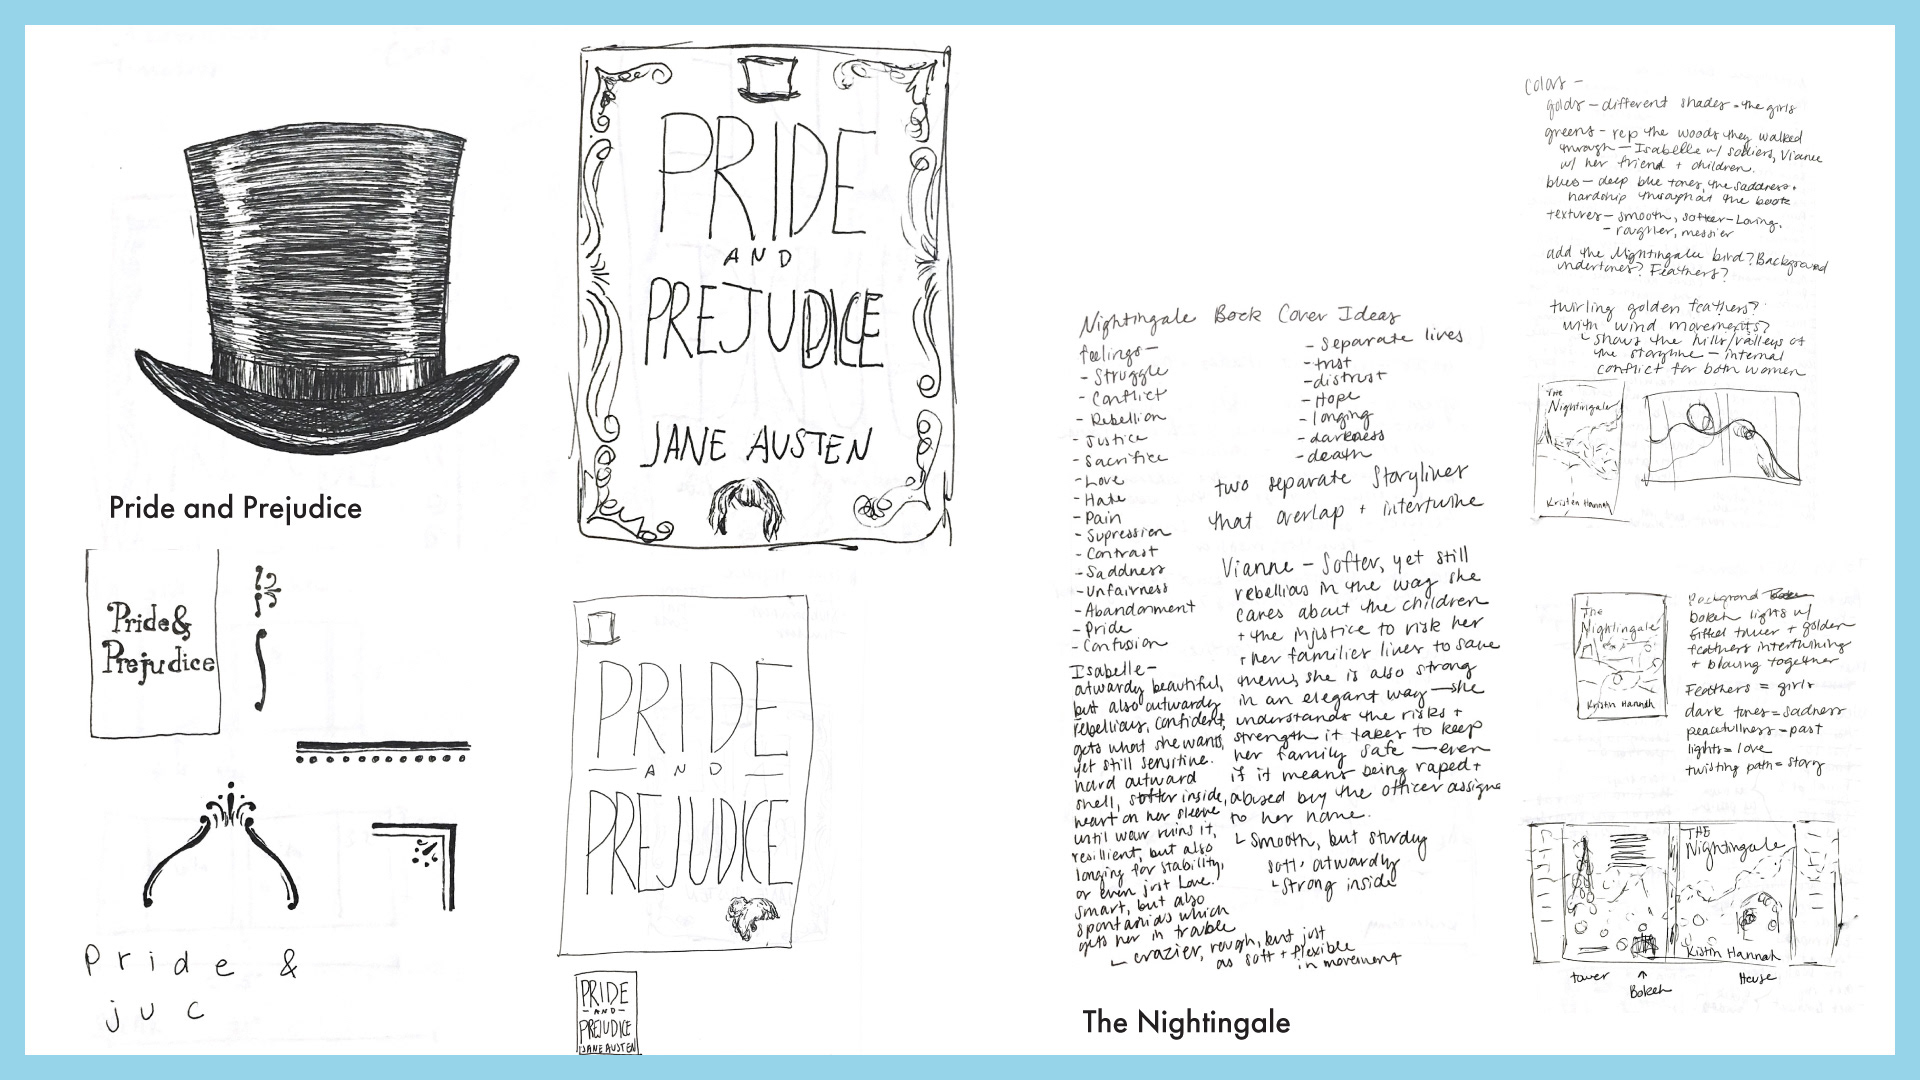 PRIDE
AND
PREJUDICE
JANE AUSTEN
Pride and Prejudice
Pride &
Prejudice
PRIDE
AND
PREJUDICE
Pride &
juc
PRIDE
AND
PREJUDICE
JANE AUSTEN
Nightingale Book Cover Ideas
feelings-
- Struggle
- Conflict
- Rebellion
- Justice
- Sacrifice
- Love
- Hate
- Pain
- Supression
- Contrast
- Saddness
- Unfairness
- Abandonment
- Pride
- Confusion
- Separate lives
- trust
- distrust
- Hope
- longing
- darkness
- death
two separate Storylines
that overlap + intertwine
Vianne - Softer, yet still
rebellious in the way she
cares about the children
+ the injustice to risk her
+ her families lives to save
them, she is also strong
in an elegant way - she
understands the risks +
strength it takes to keep
her family safe - even
if it means being raped +
abused by the officer assigne
to her home.
Smooth, but sturdy
soft outwardly
Strong inside
Isabelle-
outwardy beautiful,
but also outwardy
rebellious, confident,
gets what she wants,
yet still sensitive.
hard outward
shell, softer inside,
heart on her sleeve
until war ruins it,
resillient, but also
longing for stability,
or even just Love.
smart, but also
spontanious which
gets her in trouble
crazier, rough, but just
as soft + flexible
in movement
The Nightingale
Color -
golds - different shades - the girls
greens - rep the woods they walked
through - Isabelle w/ soldiers, Vianne
w/ her friend + children.
blues - deep blue tones, the saddness +
hardship throughout the book
textures - smooth, softer - Loving,
- rougher, messier
add the Nightingale bird? Background
undertones? Feathers?
twirling golden feathers?
with wind movements?
shows the hills/valleys of
the storyline - internal
conflict for both women
The
Nightingale
Kristin Hannah
The
Nightingale
Kristin Hannah
Background
bokeh lights w/
Eiffel tower + golden
feathers intertwining
+ blowing together
Feathers = girls
dark tones = sadness
peacefullness = past
lights = love
twisting path = story
THE
Nightingale
Kistin Hannah
tower
Bokeh
House